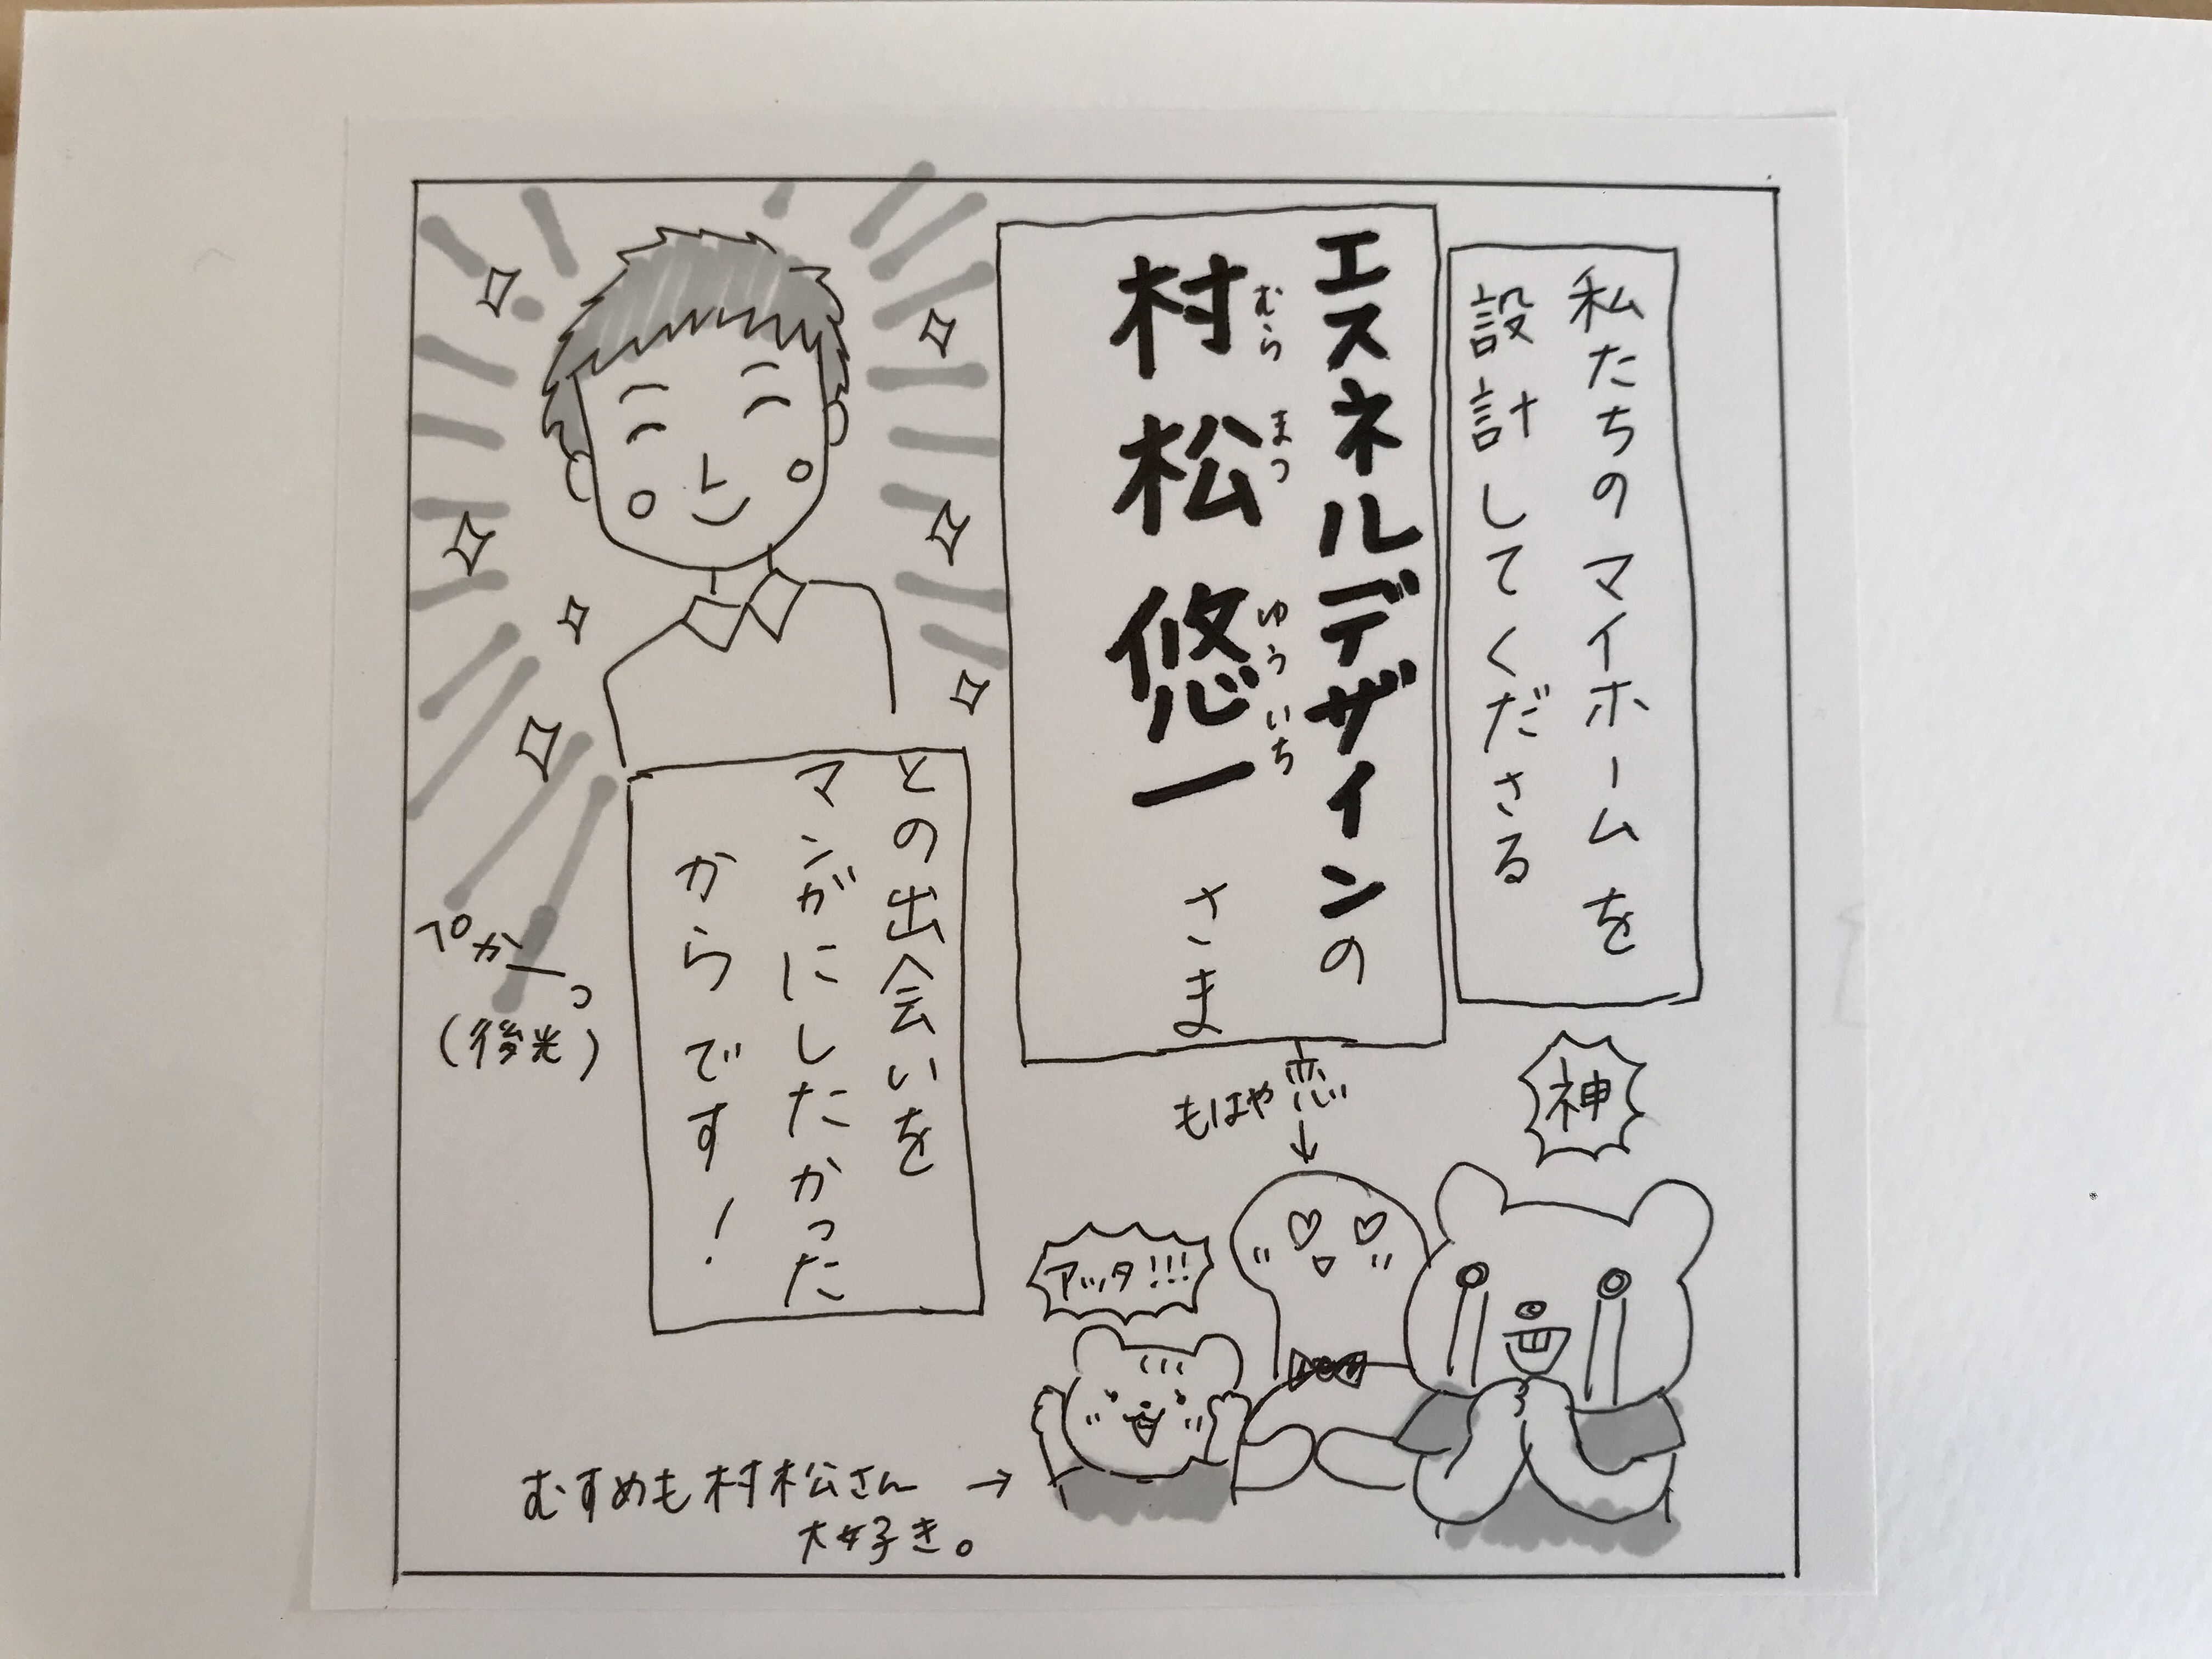 私たちのマイホームを
設計してくださる
エスネルデザインの
村松悠一さま
むらまつゆういち
との出会いを
マンガにしたかった
からです！
ペかーっ
（後光）
神
もはや恋
アッタ!!!
むすめも村松さん
大好き。